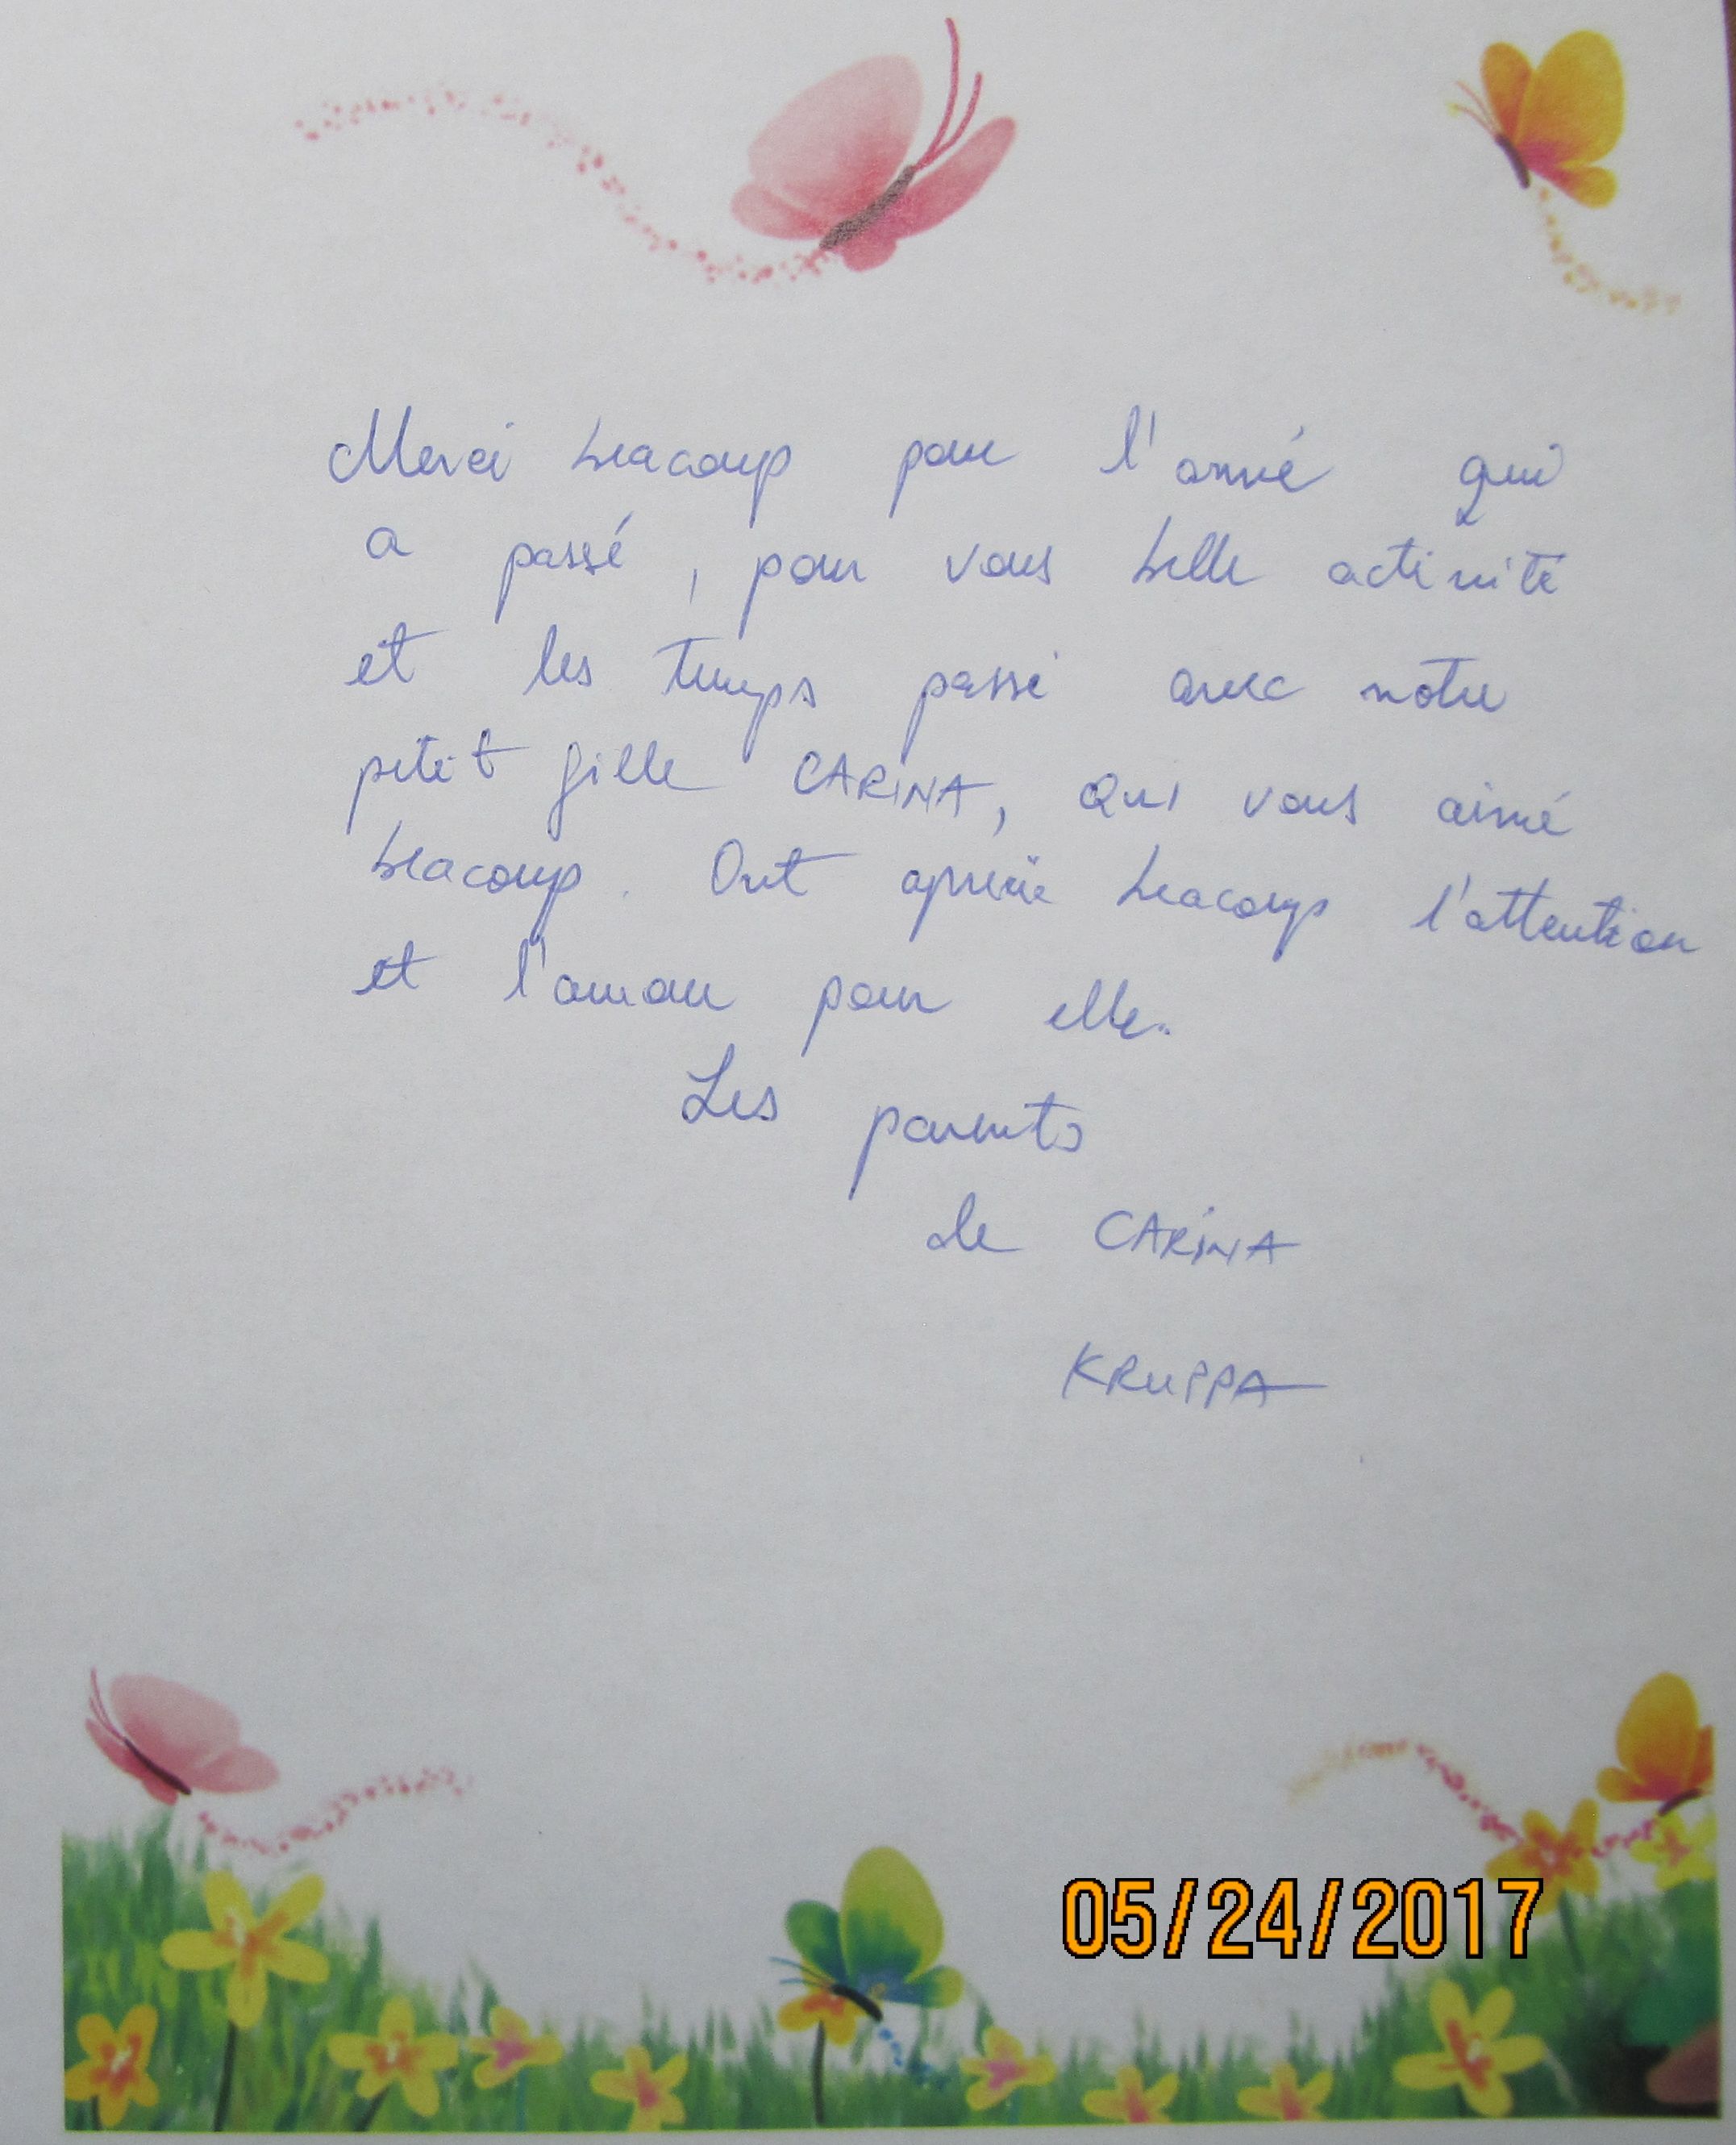 Merci beacoup pour l'anné qui
a passé, pour vous belle activité
et les temps passé avec notre
petit fille CARINA, qui vous aimé
beacoup. Ont apreciè beacoup l'attention
et l'amour pour elle.
Les parents
de CARINA
KRUPPA
05/24/2017